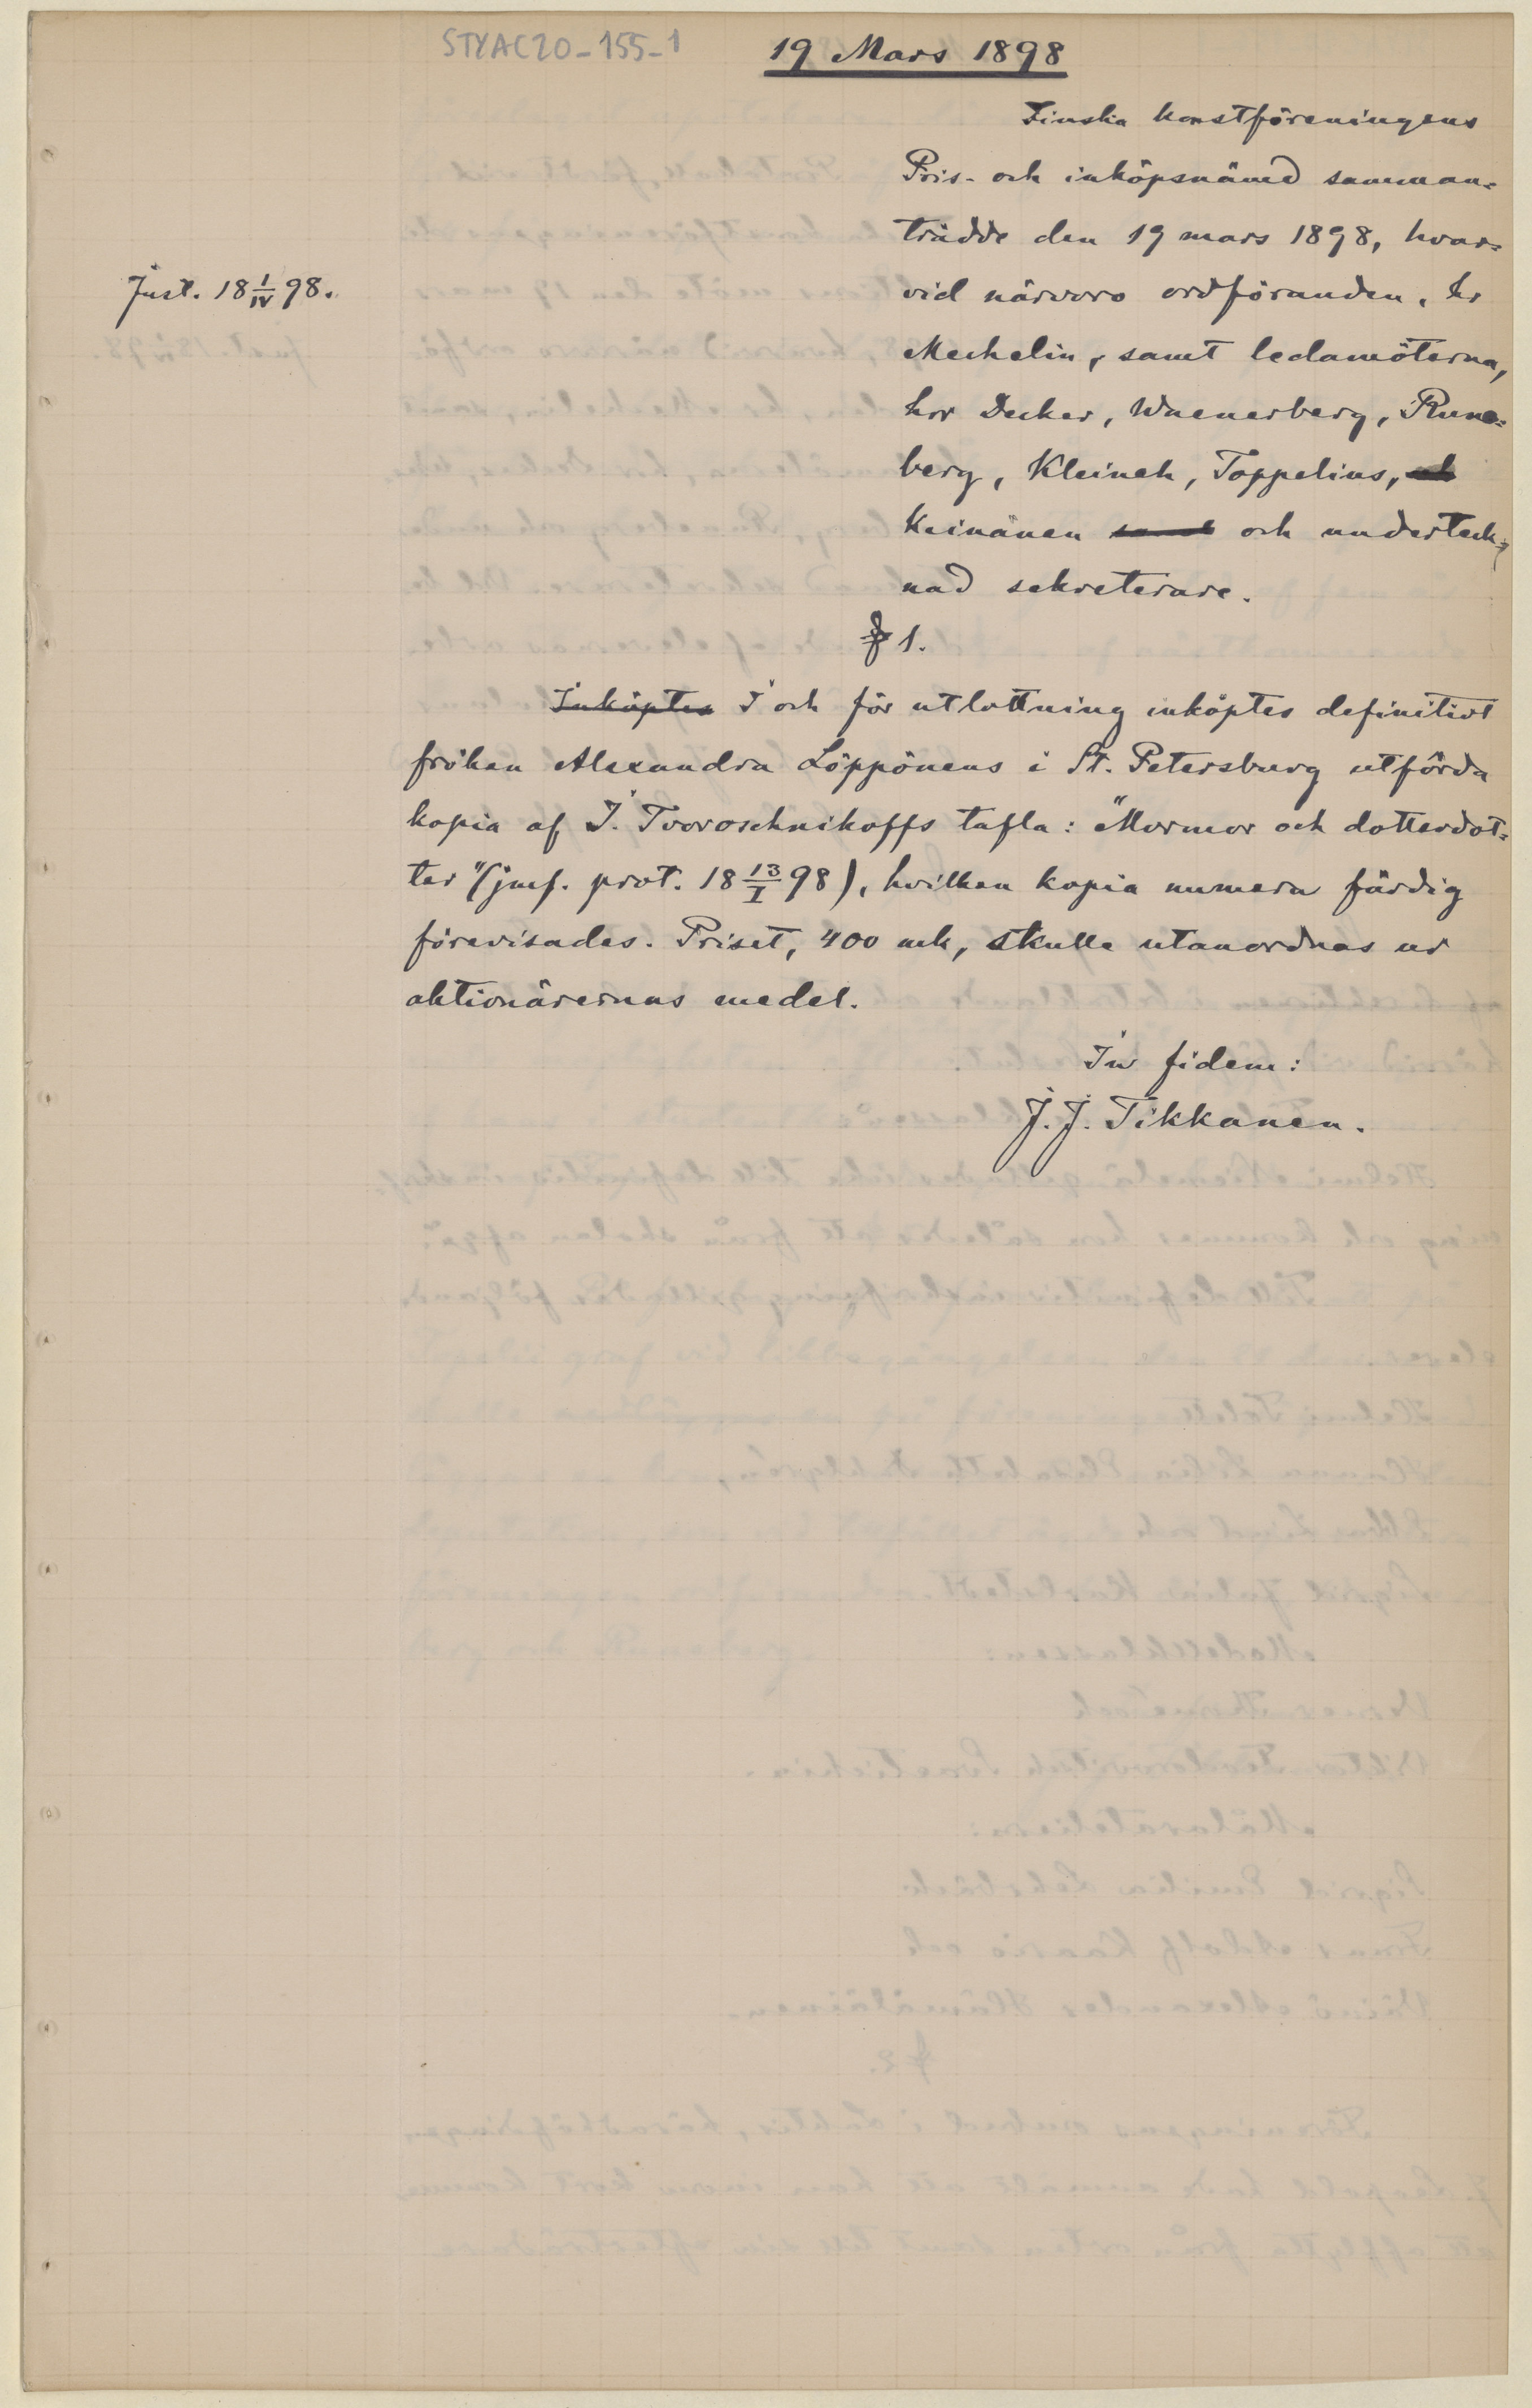 STYAC20-155-1
19 Mars 1898
Finska konstföreningens
Pris- och inköpsnämd samman=
trädde den 19 mars 1898, hvar=
Just. 18 1/IV 98.
vid närvoro ordföranden, hr
Mechelin, samt ledamöterna,
hrr Decker, Waenerberg, Rune=
berg, Kleineh, Toppelius, och
Keinänen samt och underteck=
nad sekreterare.
§ 1.
Inköptes I och för utlottning inköptes definitivt
fröken Alexandra Löppönens i St. Petersburg utförda
kopia af I. Tvoroschnikoffs tafla: "Mormor och dotterdot=
ter" (jmf. prot. 18 13/I 98), hvilken kopia numera färdig
förevisades. Priset, 400 mk, skulle utanordnas ur
aktionärernas medel.
In fidem:
J. J. Tikkanen.